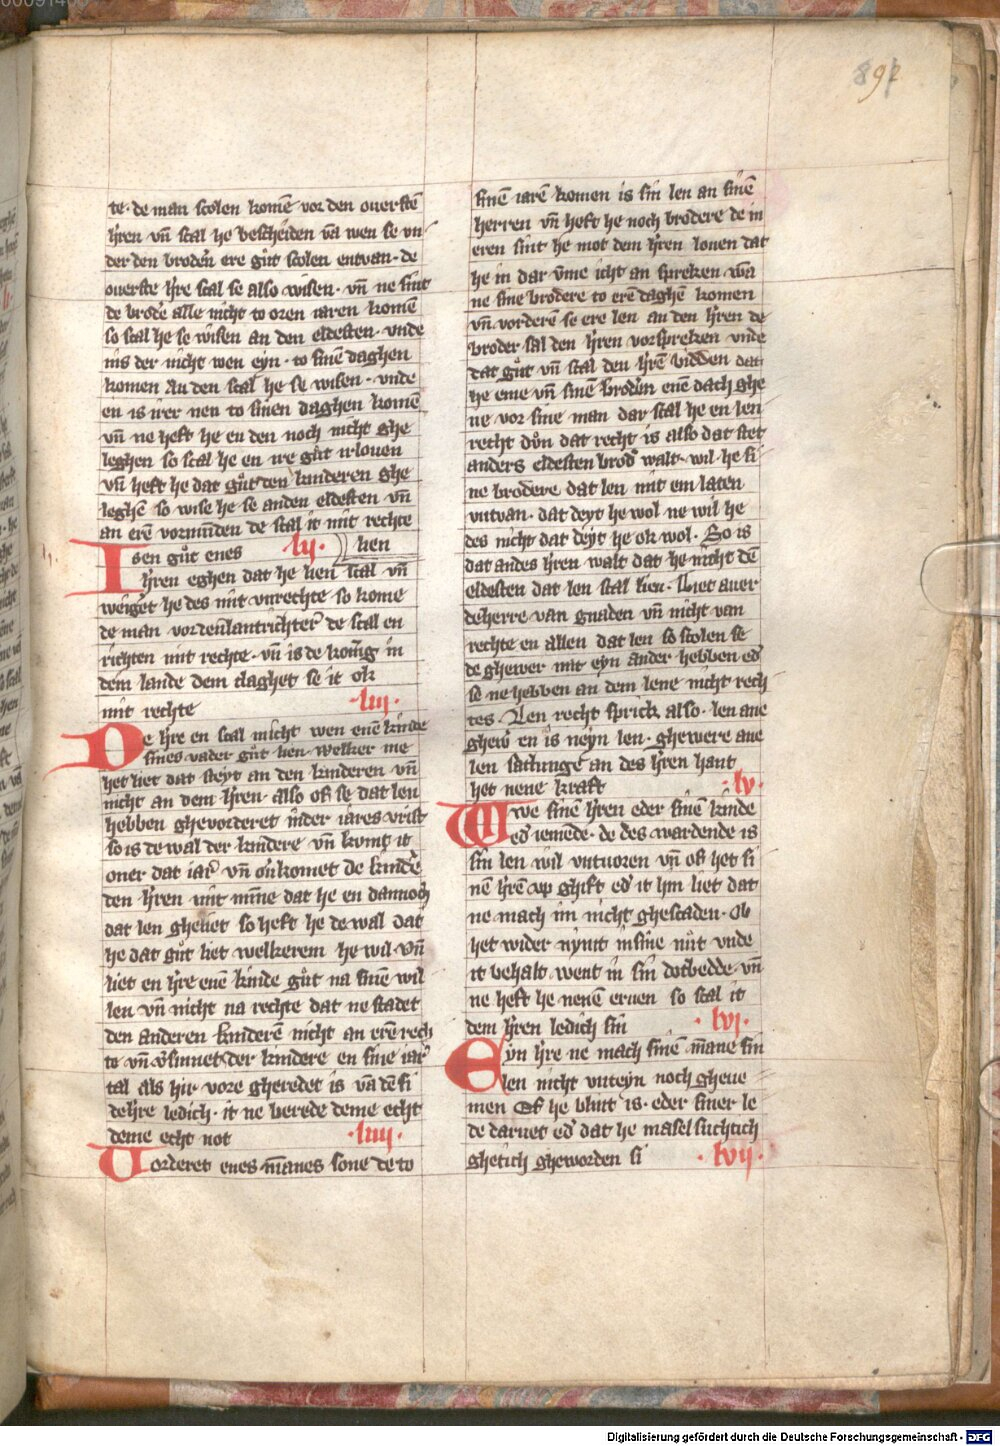 892
te· de man scolen komē vor den ouerstē
h̓ren vn̄ scal he bescheiden vā wen se vn
der den brod̓en ere gůt scolen entvan· de
ouerste h̓re scal se also wisen· vn̄ ne sint
de brod̓e alle nicht to oren iaren komē
so scal he se wisen an den eldesten· vnde
nis der nicht wen eyn· to sinē daghen
komen an den scal he se wisen· vnde
en is irer nen to sinen daghen komē
vn̄ ne heft he en den noch nicht ghe
leghen so scal he en ire gůt irlouen
vn̄ heft he dat gůt den kinderen ghe
leghē so wise he se anden eldesten vn̄
an erē vormunden de scal it mit rechte
Isen gůt enes lij· lien
h̓ren eghen dat he lien scal vn̄
weiget he des mit vnrechte so kome
de man vor den lantrichter de scal en
richten mit rechte· vn̄ is de konīg in
dem lande dem claghet se it ok
mit rechte ·liij·
De h̓re en scal nicht wen enē kinde
sines vader gůt lien· welker me
het liet dat steyt an den kinderen vn̄
nicht an dem h̓ren· also of se dat len
hebben ghevorderet inder iares vrist
so is de wal der kindere vn̄ kvmt it
ouer dat iar vn̄ komet de kindē
den h̓ren mit mīne dat he en dannoch
dat len gheliet so heft he de wal dat
he dat gůt liet welkerem he wil· vn̄
liet en h̓re enē kinde gůt na sinē wil
len vn̄ nicht na rechte dat ne stadet
den anderen kinderē nicht an erē rech
te vn̄ v̓sumet der kindere en sine iar
tal als hir vore gheredet is vā dē si
de h̓re ledich· it ne berede deme echt
deme echt not ·liiij·
Vorderet enes mānes sone de to
sinē iarē komen is sin len an sinē
herren vn̄ heft he noch brodere de in
eren sint he mot dem h̓ren louen dat
he in dar v̄me icht an spreken wā
ne sine brodere to erē daghē komen
vn̄ vorderē se ere len an den h̓ren de
broder sal den h̓ren vorspreken vnde
dat gůt vn̄ scal den h̓rē bidden dat
he eme vn̄ sinē brod̓en enē dach ghe
ne vor sine man dar scal he en len
recht důn dat recht is also dat stet
anders eldesten brod̓ walt· wil he si
ne brodere dat len mit em laten
vntvan· dat deyt he wol ne wil he
des nicht dat deyt he ok wol· So is
dat andes h̓ren walt dat he nicht dē
eldesten dat len scal lien· Liet auer
de herre van gnaden vn̄ nicht van
rechte en allen dat len so scolen se
de ghewer mit eyn ander hebben ed̓
se ne hebben an dem lene nicht rech
tes· Len recht sprick also· len ane
ghew̓ en is neyn len· ghewere ane
len sathunge an des h̓ren hant
het nene kraft ·lv·
Wwe sinē h̓ren eder sinē kinde
ed̓ iemēde· de des wardende is
sin len wil vntuoren vn̄ of het si
nē h̓rē up ghift ed̓ it hin liet dat
ne mach im nicht ghescaden· Ob
het wider nymt in sine nůt vnde
it behalt went in sin dotbedde· vn̄
ne heft he nenē eruen so scal it
dem h̓ren ledich sin ·lvi·
Eyn h̓re ne mach sinē māne sin
len nicht vnteyn noch gheue
men Of he blint is· eder siner le
de darnet ed̓ dat he maselsuchtich
ghetich gheworden si ·lvij·
Digitalisierung gefördert durch die Deutsche Forschungsgemeinschaft - DFG